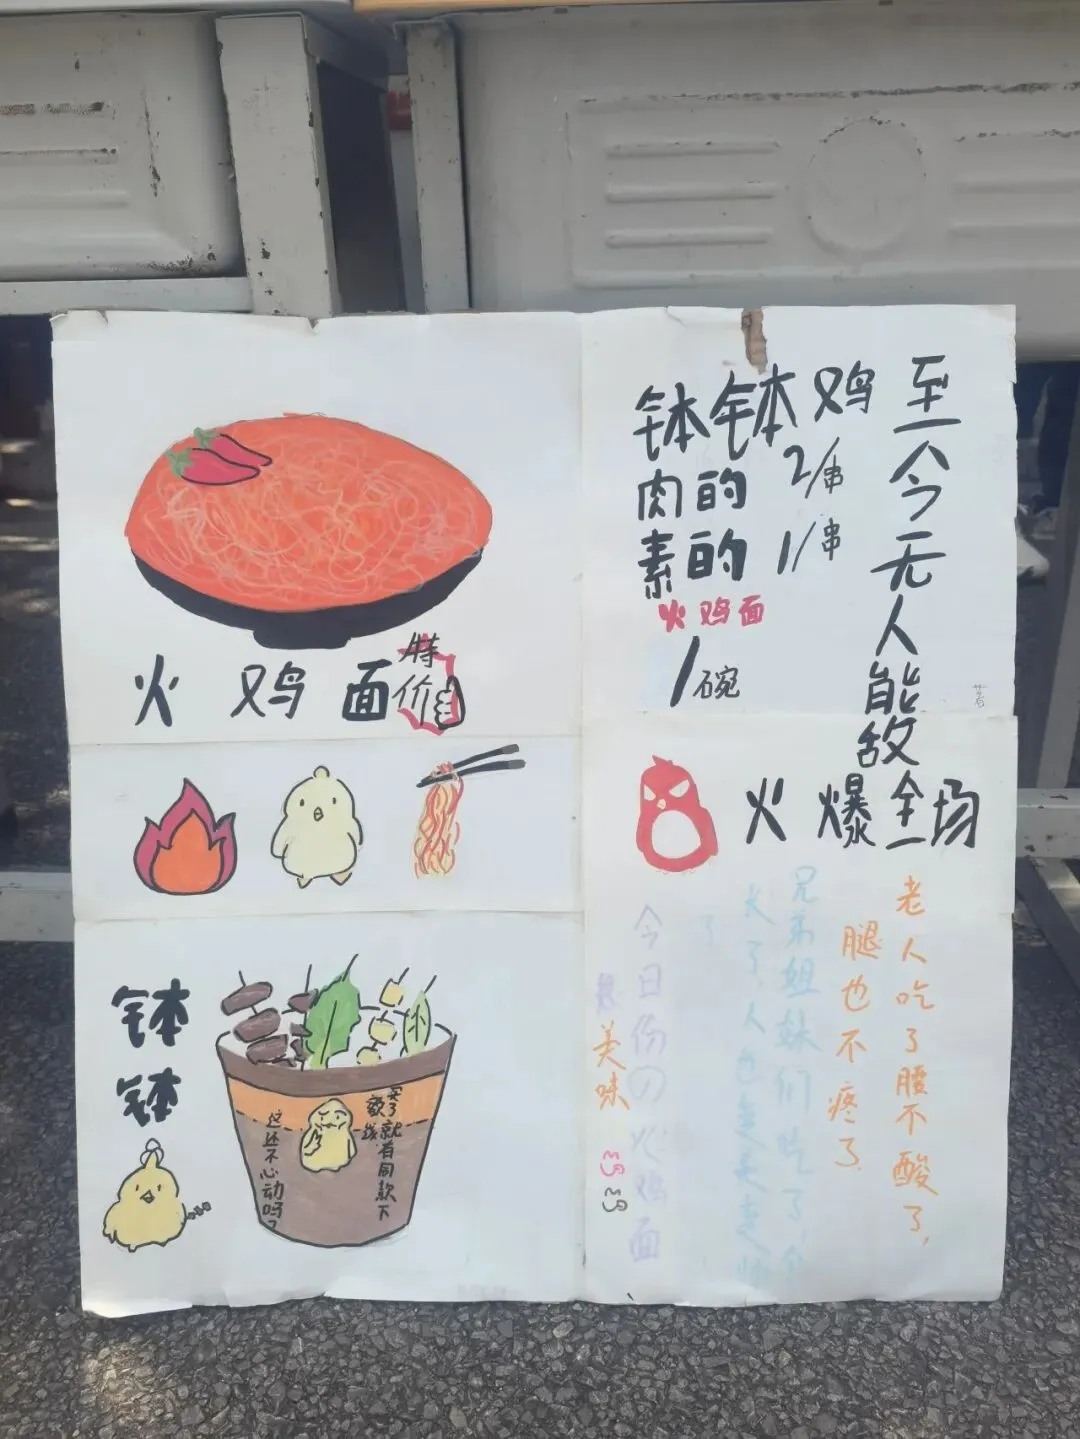 火鸡面
特价
钵钵
买了就有同款下
这还不心动吗?
钵钵鸡
肉的 2/串
素的 1/串
火鸡面
1碗
至今无人能敌
火爆全场
老人吃了腰不酸了,
腿也不疼了.
兄弟姐妹们吃了,个
长了,人也变美变
今日份の火鸡面
美味